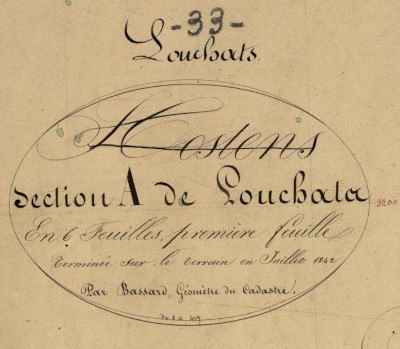 -33-
Louchats.
Hostens
Section A de Louchats
3200
En 6 Feuilles, première feuille
Terminée sur le terrain en Juillet 1842
Par Bassard, Géomètre du Cadastre.